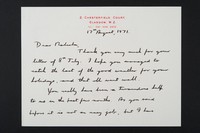 5, CHESTERFIELD COURT
GLASGOW W.2
17th August, 1972
Dear Malcolm,
Thank you very much for your
letter of 8th July. I hope you managed to
catch the best of the good weather for your
holiday, and that all went well.
You really have been a tremendous help
to us in the past few months. As you once
before it is not an easy job, but I have